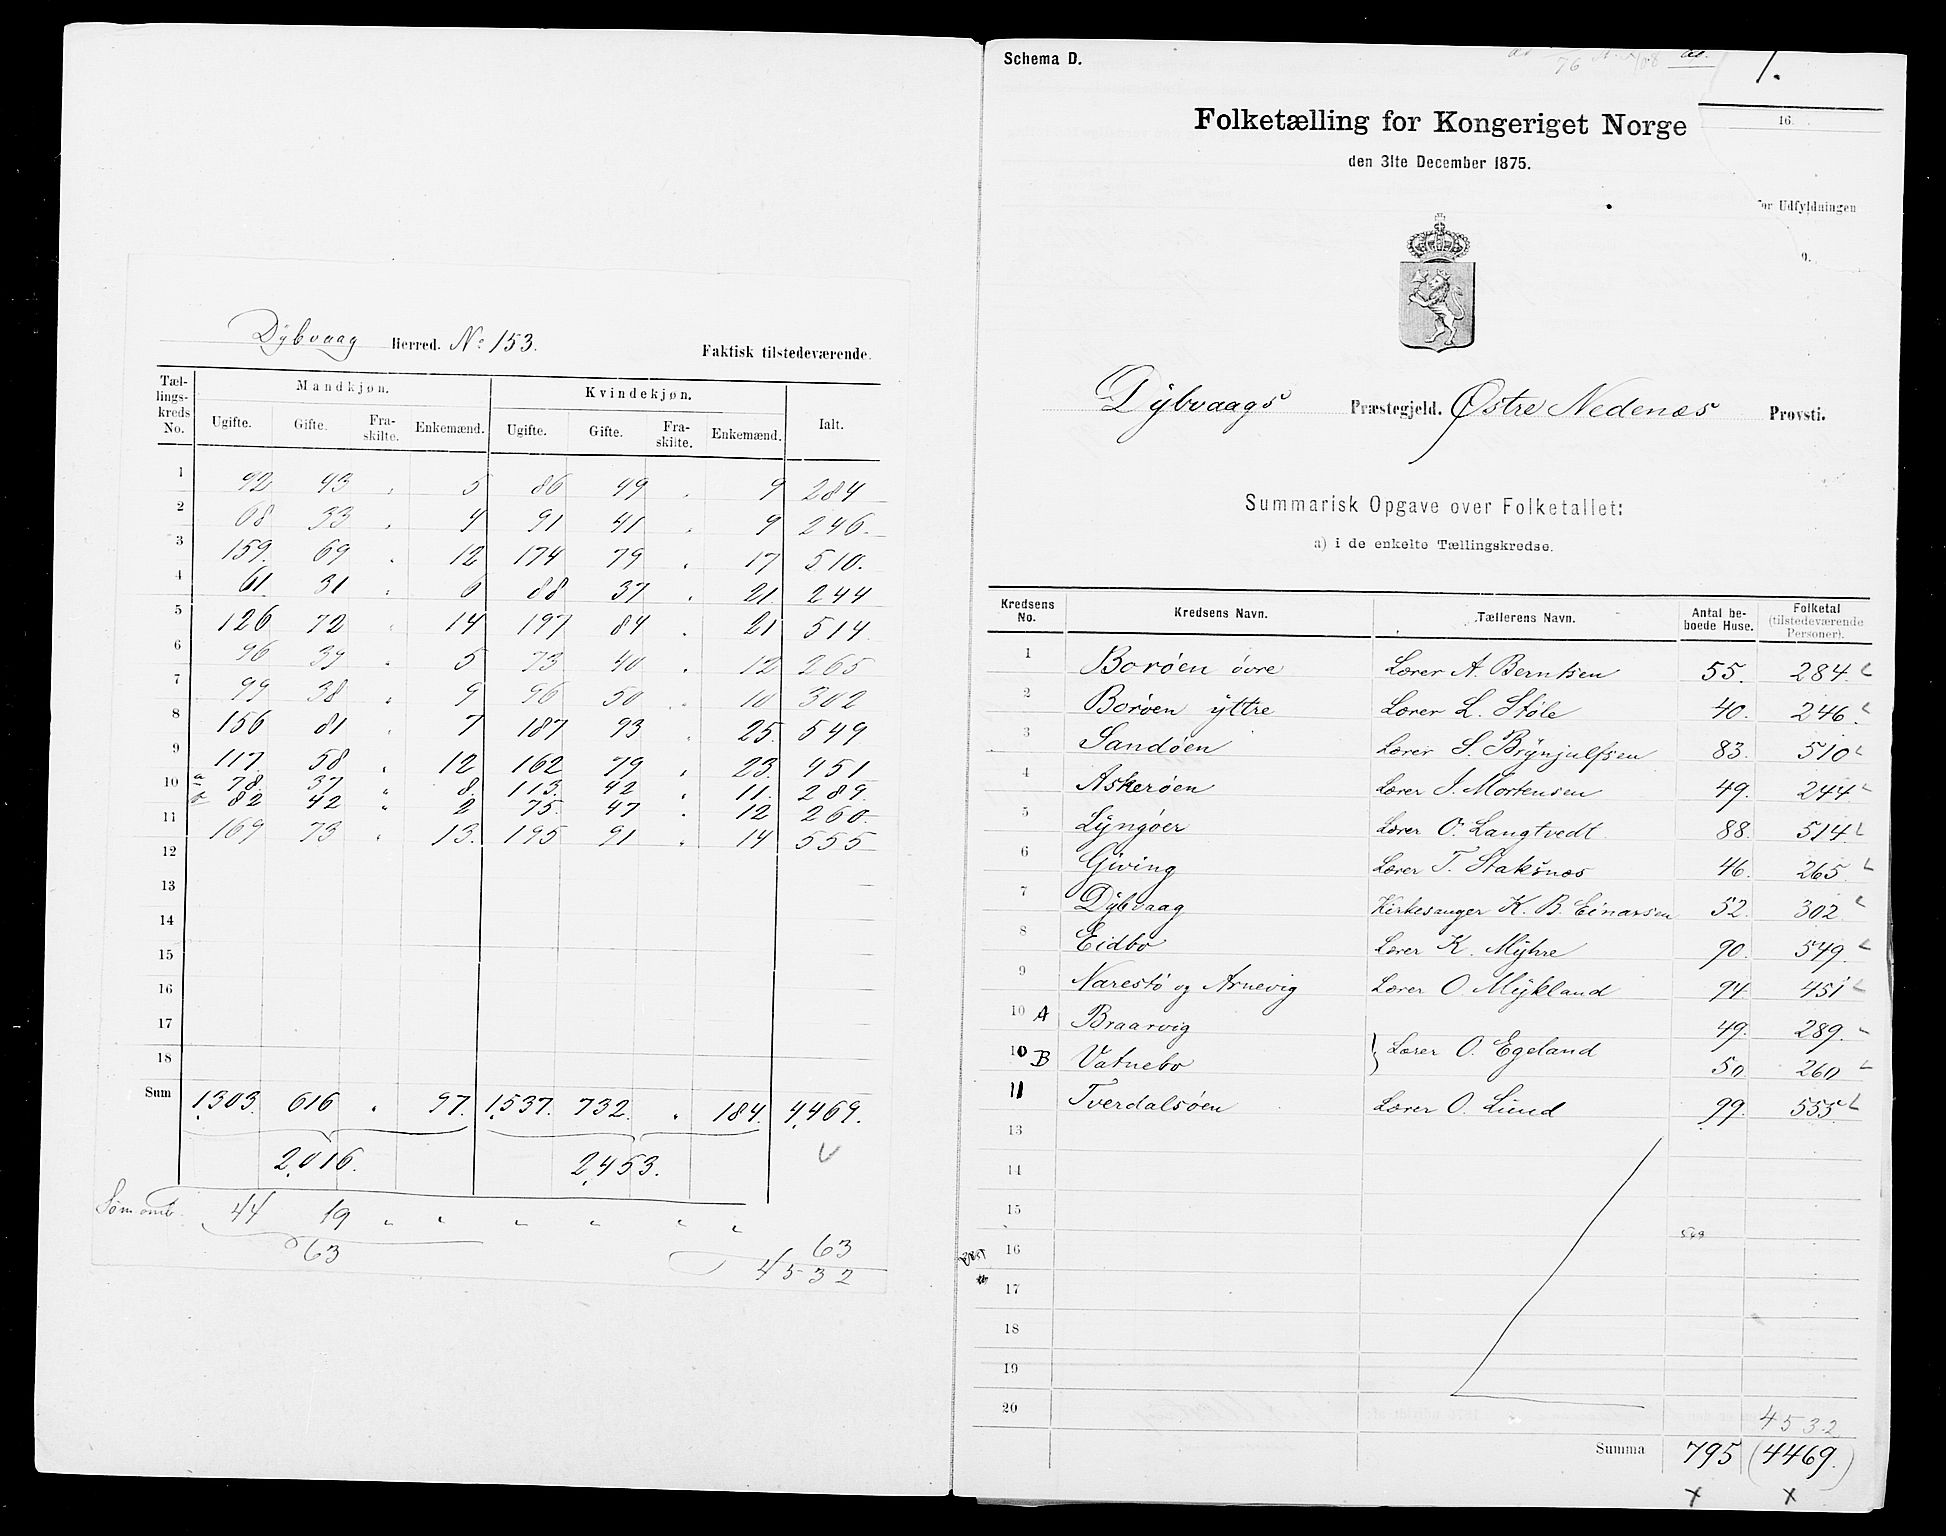 Dybvaag Herred. No 153.
Faktisk tilstedeværende.
Tællingskreds No. Mandkjøn. Kvindekjøn. Ialt.
Ugifte. Gifte. Fraskilte. Enkemænd. Ugifte. Gifte. Fraskilte. Enkemænd.
1 92 43 " 5 86 49 " 9 284
2 68 33 " 4 91 41 " 9 246.
3 159. 69 " 12 174 79 " 17 510.
4 61. 31 " 6 88 37 " 21. 244
5 126 72 " 14 197 84 " 21 514
6 96 39 " 5 73 40 " 12 265
7 99 38 " 9 96 50 " 10 302
8 156 81 " 7 187 93 " 25. 549
9 117. 58 " 12 162 79 " 23. 451
10 a 78. 37 " 8. 113. 42 " 11. 289.
b 82 42 " 2 75. 47 " 12 260.
11 169 73 " 13. 195 91 " 14 555
12
13
14
15
16
17
18
Sum 1,303. 616 " 97. 1,537. 732. " 184. 4,469.
2,016. 2,453.
Søm omb. 44 19 " " " " " "
63 63
4532
Schema D.
1.
16.
Folketælling for Kongeriget Norge
den 31te December 1875.
for Udfyldningen
9.
Dybvaags Præstegjeld. Østre Nedenæs Provsti.
Summarisk Opgave over Folketallet:
a) i de enkelte Tællingskredse.
Kredsens No. Kredsens Navn. Tællerens Navn. Antal beboede Huse. Folketal (tilstedeværende Personer).
1 Borøen övre Lærer A. Berntsen 55. 284.
2 Borøen yttre Lærer L. Støle 40. 246.
3 Sandøen Lærer S. Brynjulfsen 83. 510
4 Askerøen Lærer J. Mortensen 49. 244
5 Lyngøer Lærer O. Langtvedt 88. 514
6 Giving Lærer T. Staksnæs 46. 265
7 Dybvaag Kirkesanger K. B. Einarsen 52. 302
8 Eidbo Lærer K. Myhre 90. 549.
9 Narestø og Arnevig Lærer O Mykland 94. 451
10 A Braarvig 49. 289.
10 B Vatnebo } Lærer O. Egeland 50 260
11 Tverdalsøen Lærer O. Lund 99. 555
13
14
15
16
17
18
19
20
4532
Summa 795 (4469.)
x x